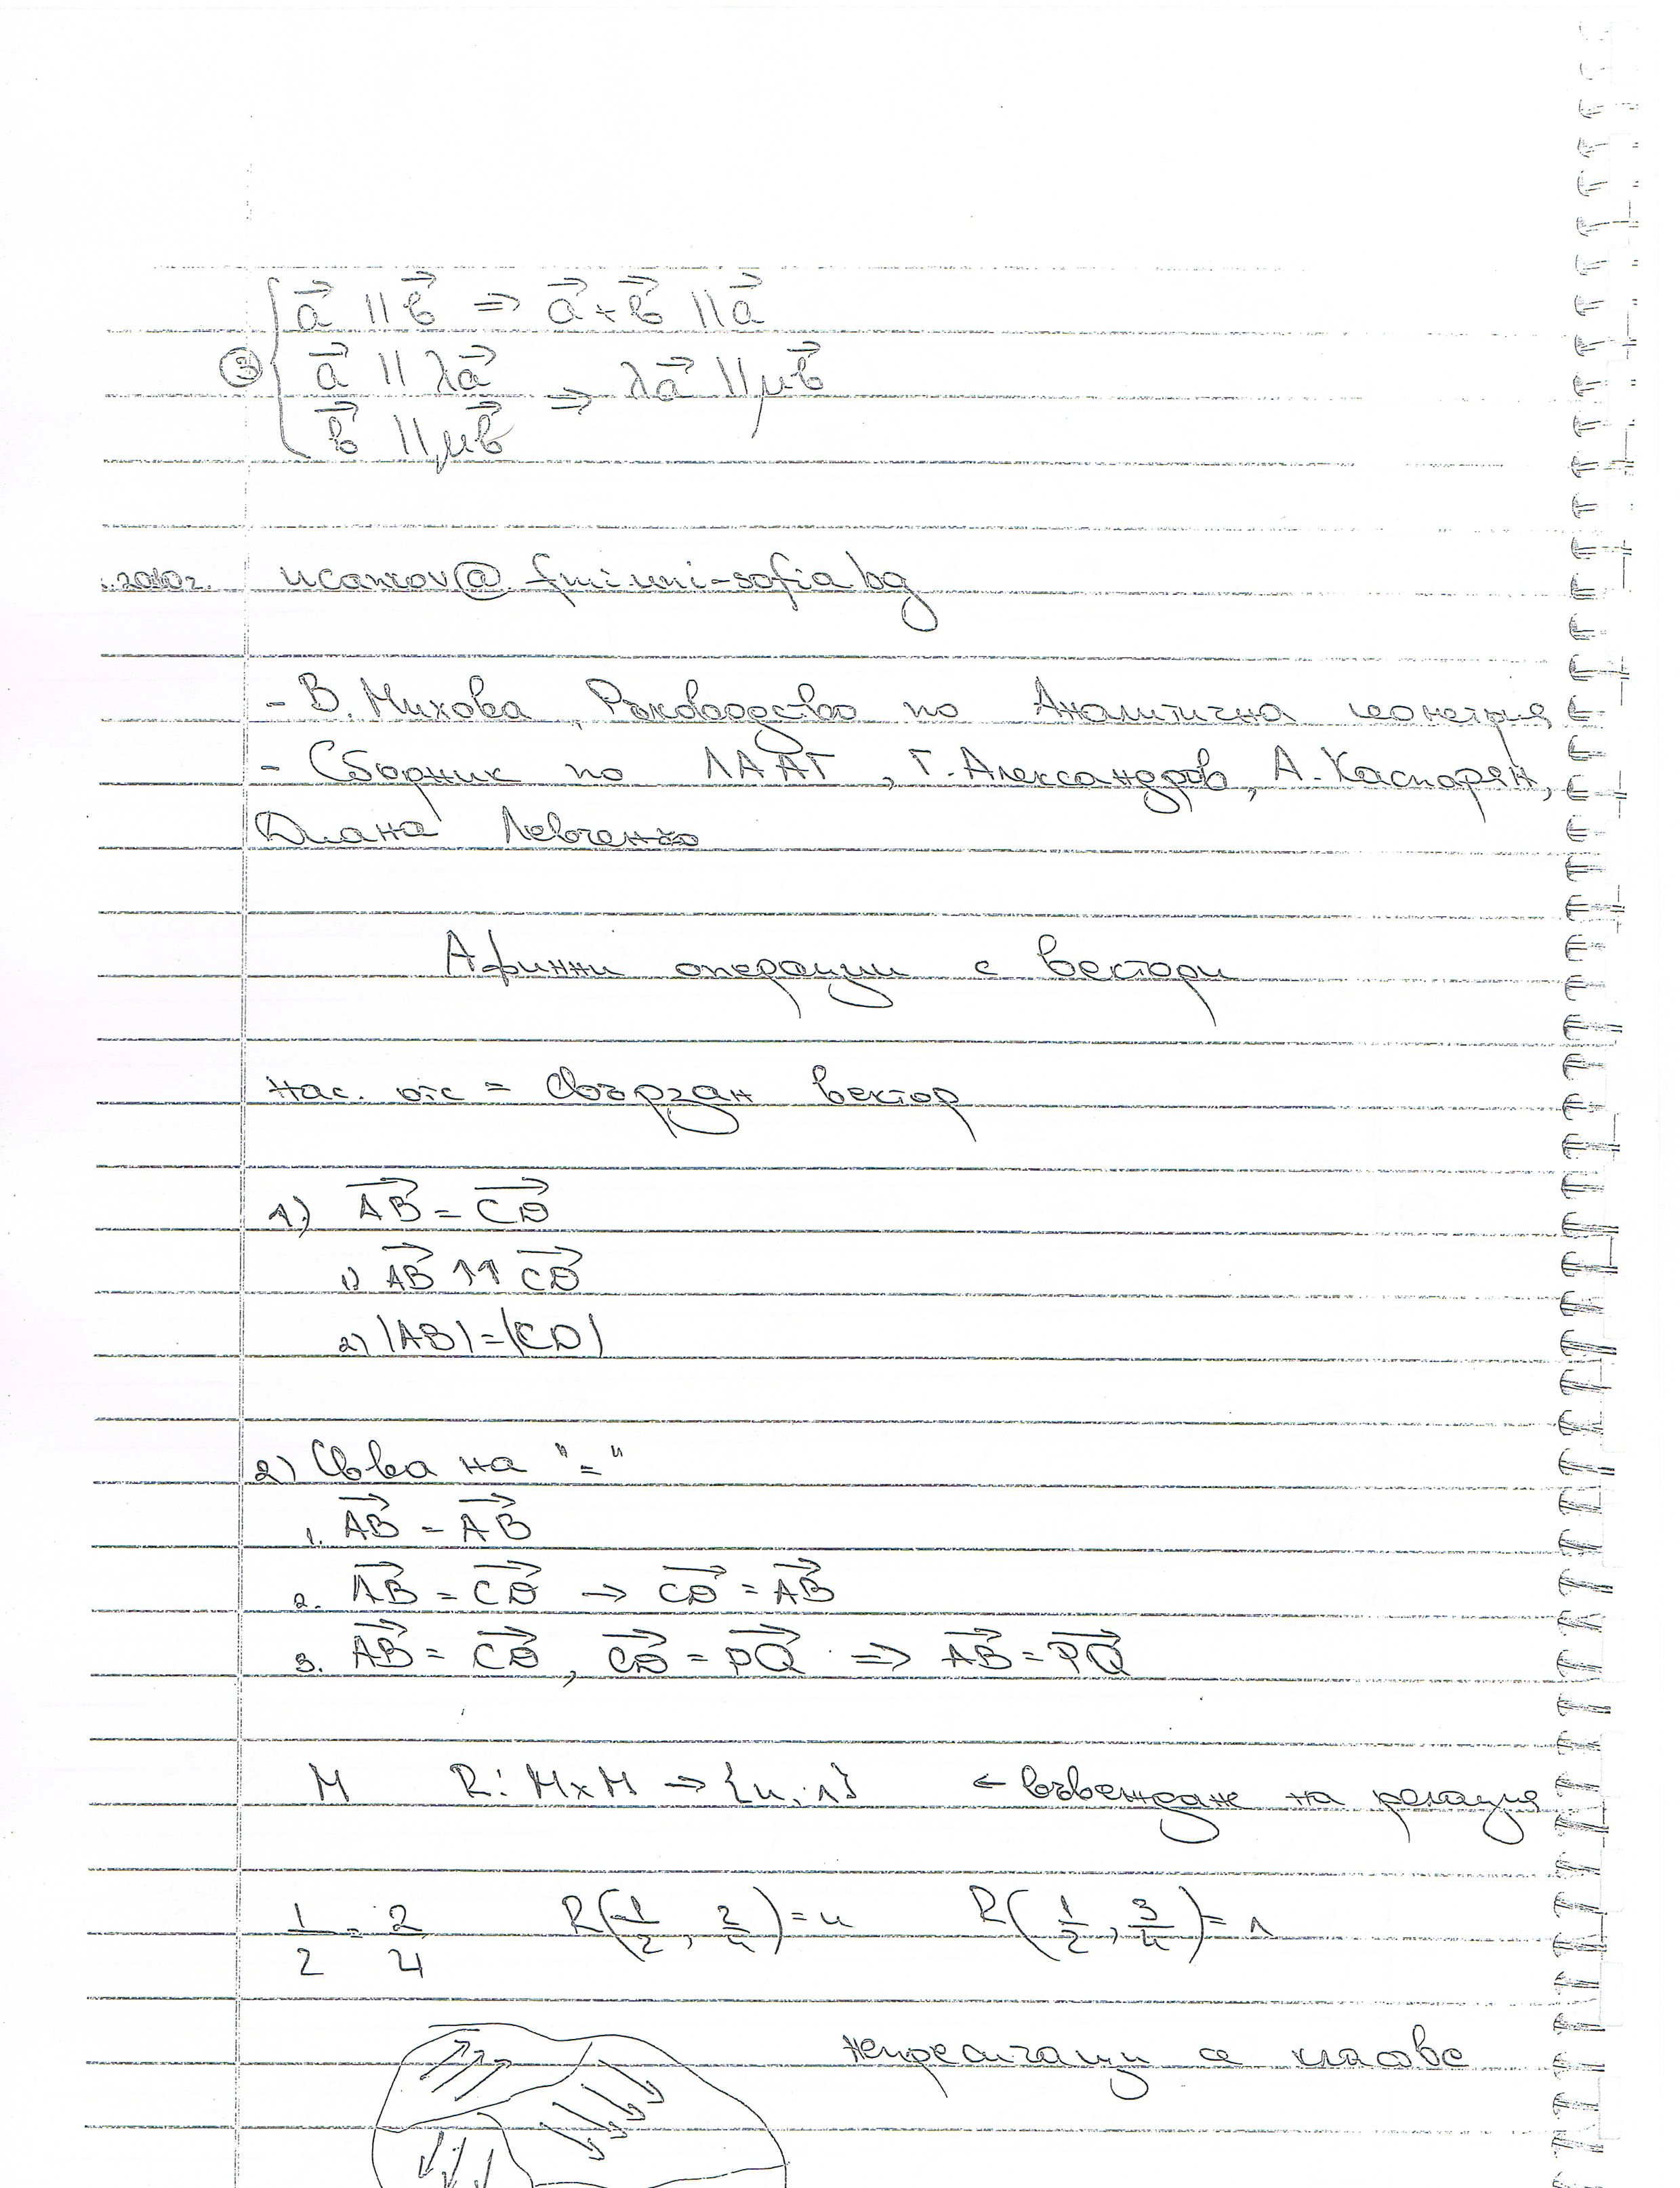 ③ { a⃗ || b⃗ ⇒ a⃗ + b⃗ || a⃗
a⃗ || λa⃗
b⃗ || μb⃗ ⇒ λa⃗ || μb⃗
.2010г. @fmi.uni-sofia.bg
- В. Михова, Ръководство по Аналитична геометрия
- Сборник по ЛААГ, Г. Александров, А. Каспарян,
Диана Левченко
Афинни операции с вектори
Нас. отс = свързан вектор
1) A͞B⃗ = C͞D⃗
1) A͞B⃗ ↑↑ C͞D⃗
2) |AB| = |CD|
2) Св-ва на "="
1. A͞B⃗ = A͞B⃗
2. A͞B⃗ = C͞D⃗ → C͞D⃗ = A͞B⃗
3. A͞B⃗ = C͞D⃗, C͞D⃗ = P͞Q⃗ ⇒ A͞B⃗ = P͞Q⃗
M R: M×M → {и, л} ← въвеждане на релация
1/2 = 2/4 R(1/2, 2/4) = и R(1/2, 3/4) = л
непресичащи се класове